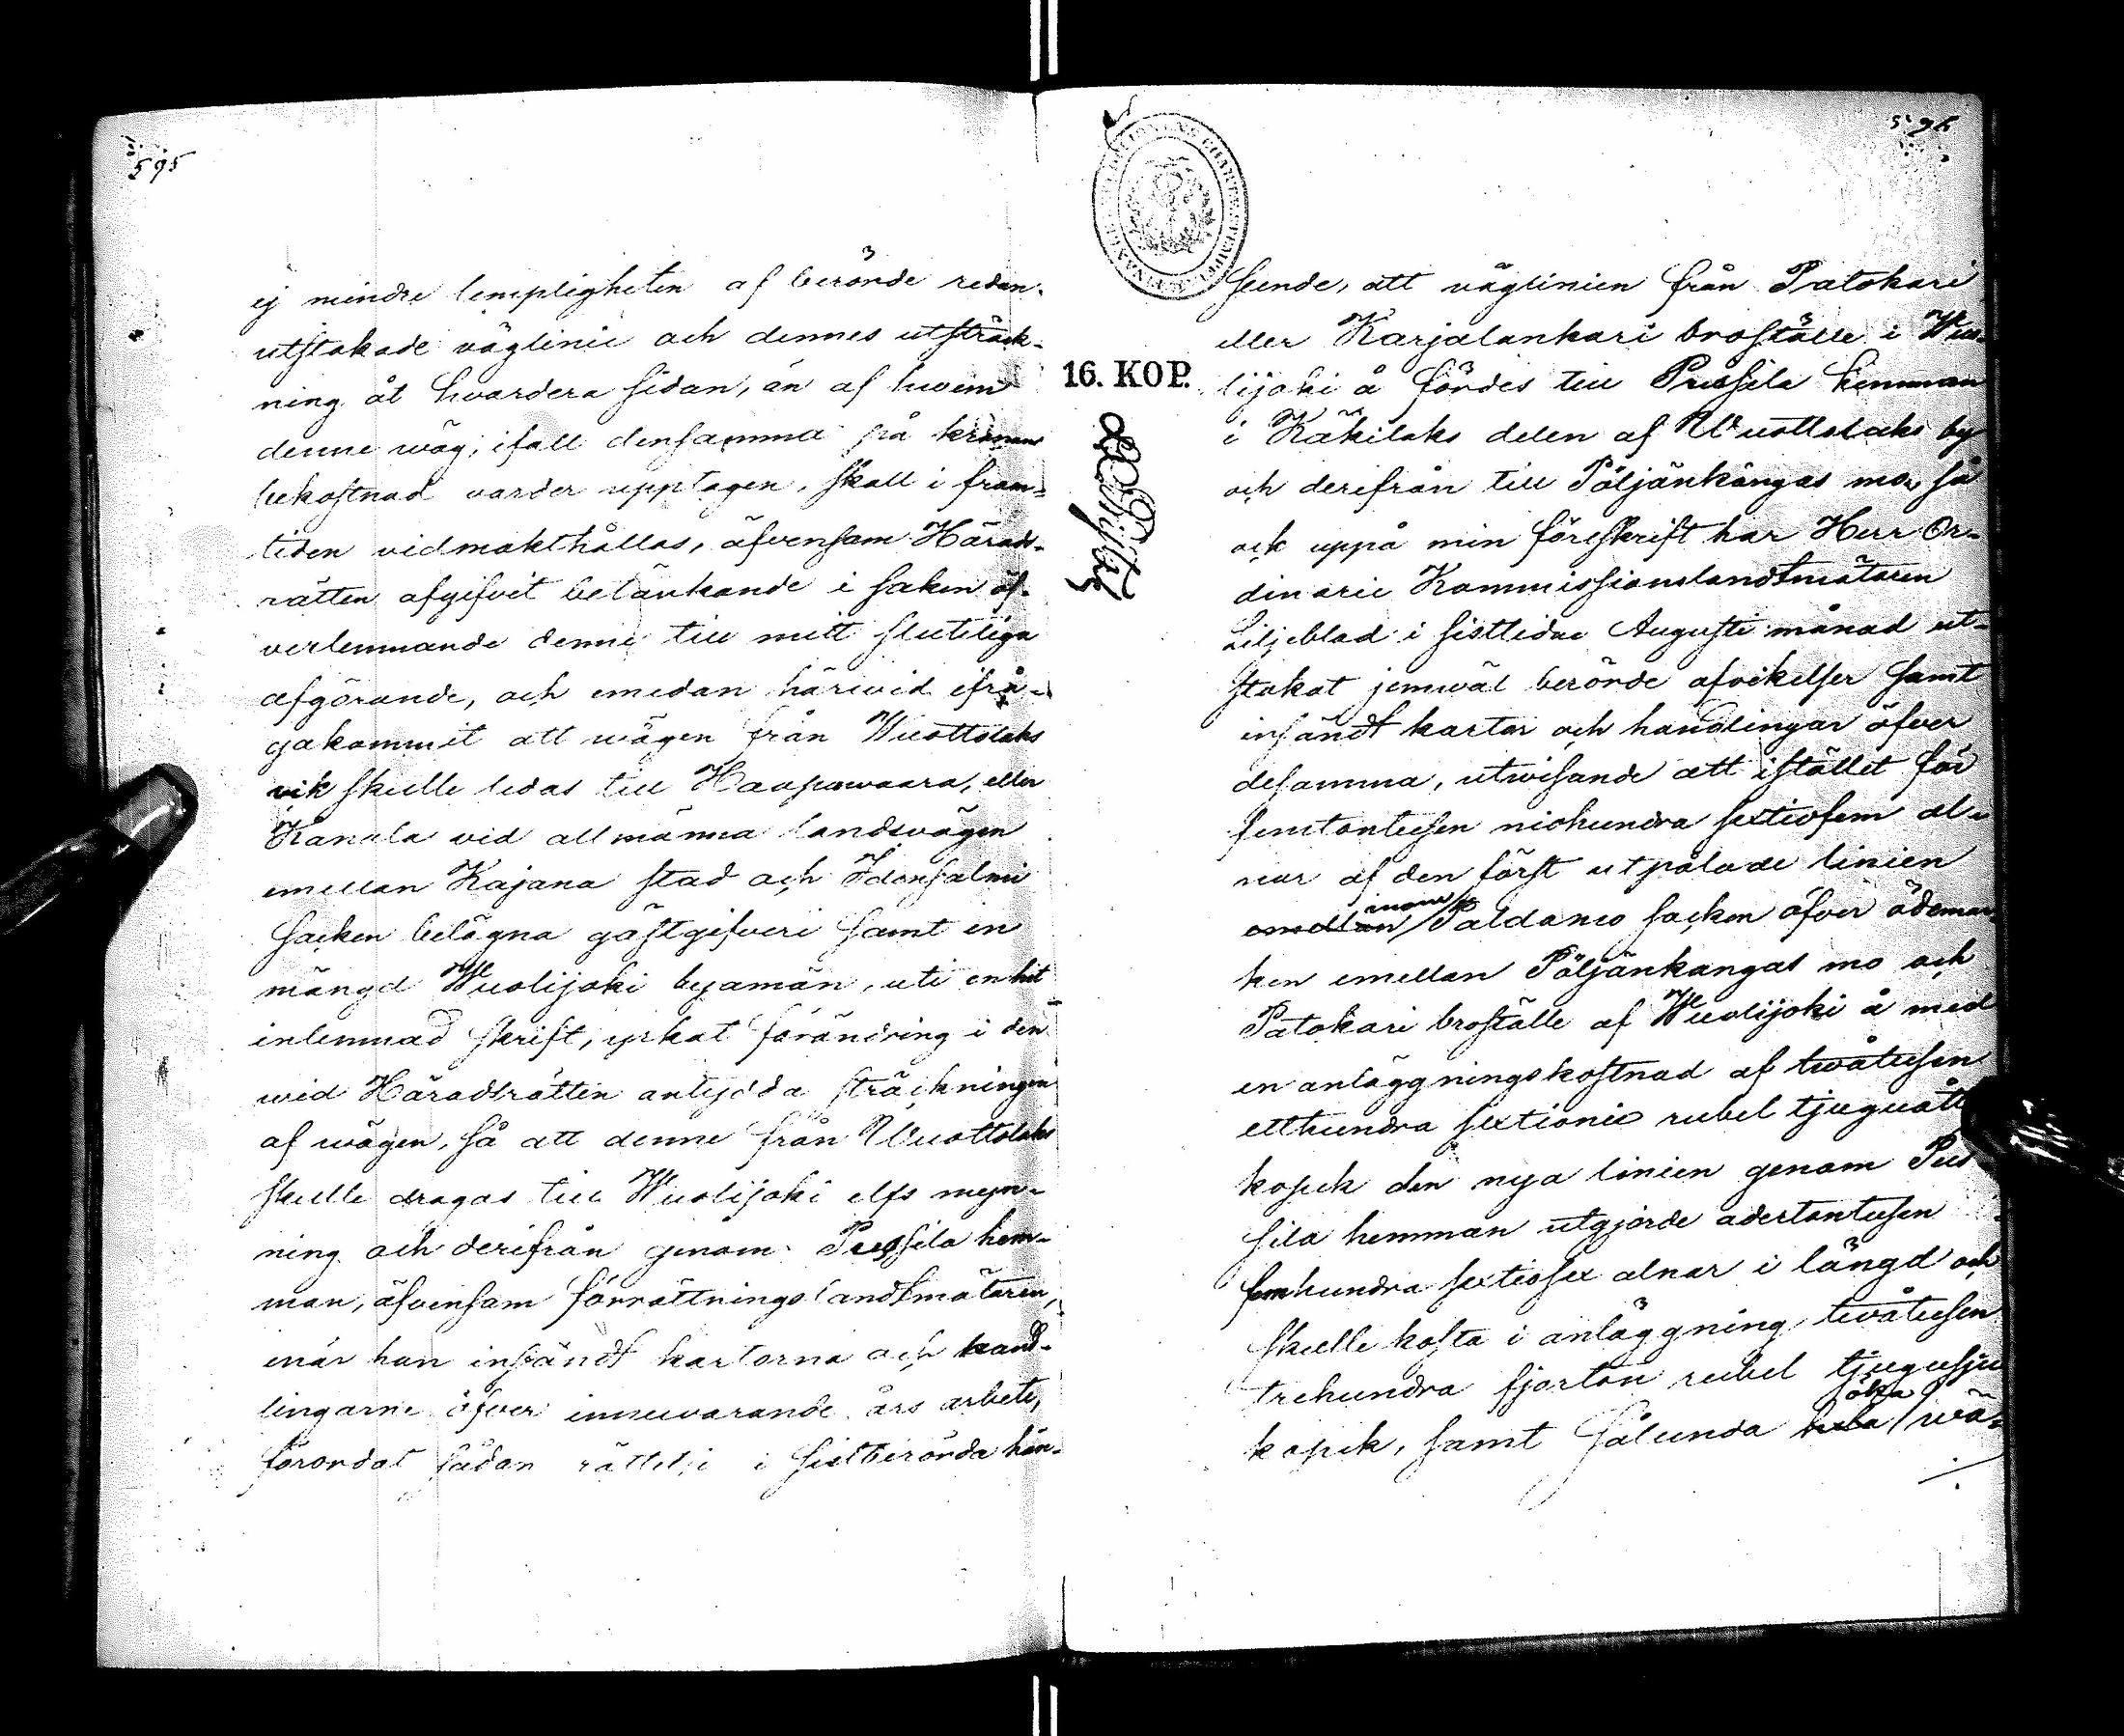 595
ej mindre lempligheten af berörde redan
utstakade väglinie och dennes utsträck-
ning åt hvardera sidan, än af hvem
denne wäg, ifall densamma på kronans
bekostnad varder upptagen, skall i fram-
tiden vidmakthållas, äfvensom Härads-
rätten afgifvit betänkande i saken öf-
verlemnande denne till mitt slutliga
afgörande, och emedan härwid ifrå-
gakommit att wägen från Wuottolaks
vik skulle ledas till Haapawaara, eller
Kanala vid allmänna landsvägen
emellan Kajana stad och Idensalmi
Socken belägna gästgifveri samt en
mängd Wuolijoki byamän, uti en hit
inlemnad skrift, yrkat förändring i den
wid Häradsrätten antydda sträckningen
af wägen, så att denne från Wuottolaks
skulle dragas till Wuolijoki elfs myn-
ning och derifrån genom Pussila hem-
man, äfvensom förrättningslandtmätaren,
enär han insändt kartorna och hand-
lingarne öfver innewarande års arbete,
förordat sådan rättelse i sistberörda hän-
596
16. KOP.
seende, att väglinien från Patokari
eller Karjalankari broställe i Wuo-
lijoki å fördes till Pussila hemman
i Käkilaks delen af Wuottolaks by
och derifrån till Pöljänkangas mo, så
ock uppå min föreskrift har Herr Or-
dinarie Kommissionslandtmätaren
Liljeblad i sistlidne Augusti månad ut-
stakat jemwäl berörde afvikelser samt
insändt kartor och handlingar öfver
desamma, utwisande att istället för
femtontusen niohundra sextiofem al-
nar af den först utpålade linien
emellan inom Paldamo socken öfver ödemar-
ken emellan Pöljänkangas mo och
Patokari broställe af Wuolijoki å med
en anläggningskostnad af twåtusen
etthundra sextionio rubel tjuguåtta
kopek den nya linien genom Pus-
sila hemman utgjorde adertontusen
femhundra sextiosex alnar i längd och
skulle kosta i anläggning twåtusen
trehundra fjorton rubel tjugusju
kopek, samt sålunda hela öka wä-